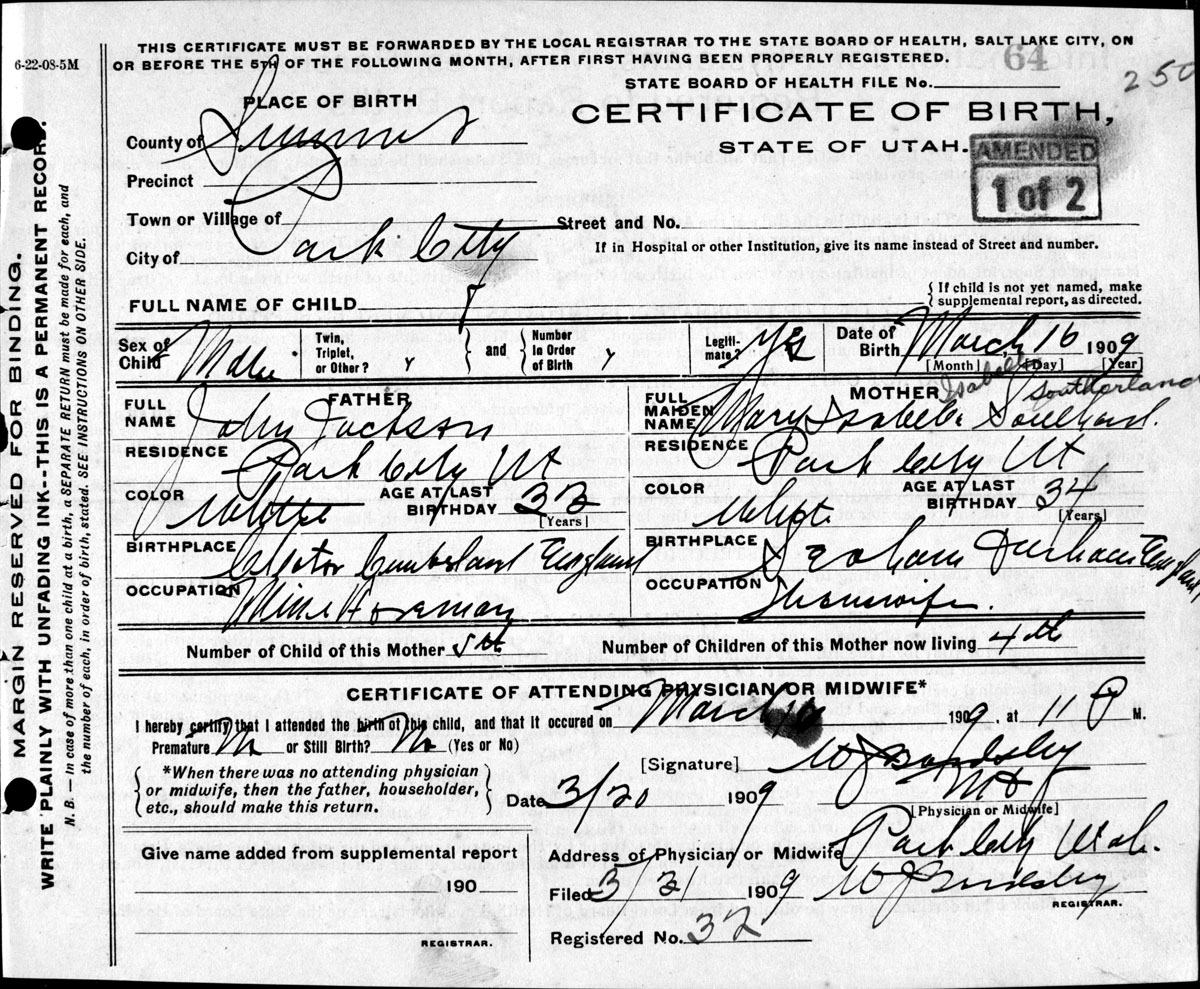 6-22-08-5M
THIS CERTIFICATE MUST BE FORWARDED BY THE LOCAL REGISTRAR TO THE STATE BOARD OF HEALTH, SALT LAKE CITY, ON
OR BEFORE THE 5TH OF THE FOLLOWING MONTH, AFTER FIRST HAVING BEEN PROPERLY REGISTERED.
64
STATE BOARD OF HEALTH FILE No.
250
PLACE OF BIRTH
CERTIFICATE OF BIRTH,
STATE OF UTAH.
AMENDED
1 of 2
County of Summit
Precinct
Town or Village of
Street and No.
City of Park City
If in Hospital or other Institution, give its name instead of Street and number.
FULL NAME OF CHILD
If child is not yet named, make
supplemental report, as directed.
Sex of Child Male
Twin, Triplet, or Other?
and
Number In Order of Birth
Legitimate? Yes
Date of Birth March 16 1909
[Month] [Day] [Year]
FATHER
FULL NAME John Jackson
RESIDENCE Park City Ut
COLOR White AGE AT LAST BIRTHDAY 33
[Years]
BIRTHPLACE Cumberland England
OCCUPATION Mine Foreman
MOTHER
Isabella Southerland
FULL MAIDEN NAME Mary
RESIDENCE Park City Ut
COLOR White AGE AT LAST BIRTHDAY 34
[Years]
BIRTHPLACE Seaham Durham England
OCCUPATION Housewife.
Number of Child of this Mother 5th
Number of Children of this Mother now living 4th
CERTIFICATE OF ATTENDING PHYSICIAN OR MIDWIFE*
I hereby certify that I attended the birth of this child, and that it occured on March 16 1909, at 11 P M.
Premature No or Still Birth? No (Yes or No)
*When there was no attending physician
or midwife, then the father, householder,
etc., should make this return.
[Signature] W J Bardsley
MD
[Physician or Midwife]
Date 3/20 1909
Give name added from supplemental report
190
REGISTRAR.
Address of Physician or Midwife Park City Utah.
Filed 3/21 1909 W J Bardsley
REGISTRAR.
Registered No. 32
MARGIN RESERVED FOR BINDING.
WRITE PLAINLY WITH UNFADING INK--THIS IS A PERMANENT RECORD.
N. B. — In case of more than one child at a birth, a SEPARATE RETURN must be made for each, and
the number of each, in order of birth, stated. SEE INSTRUCTIONS ON OTHER SIDE.